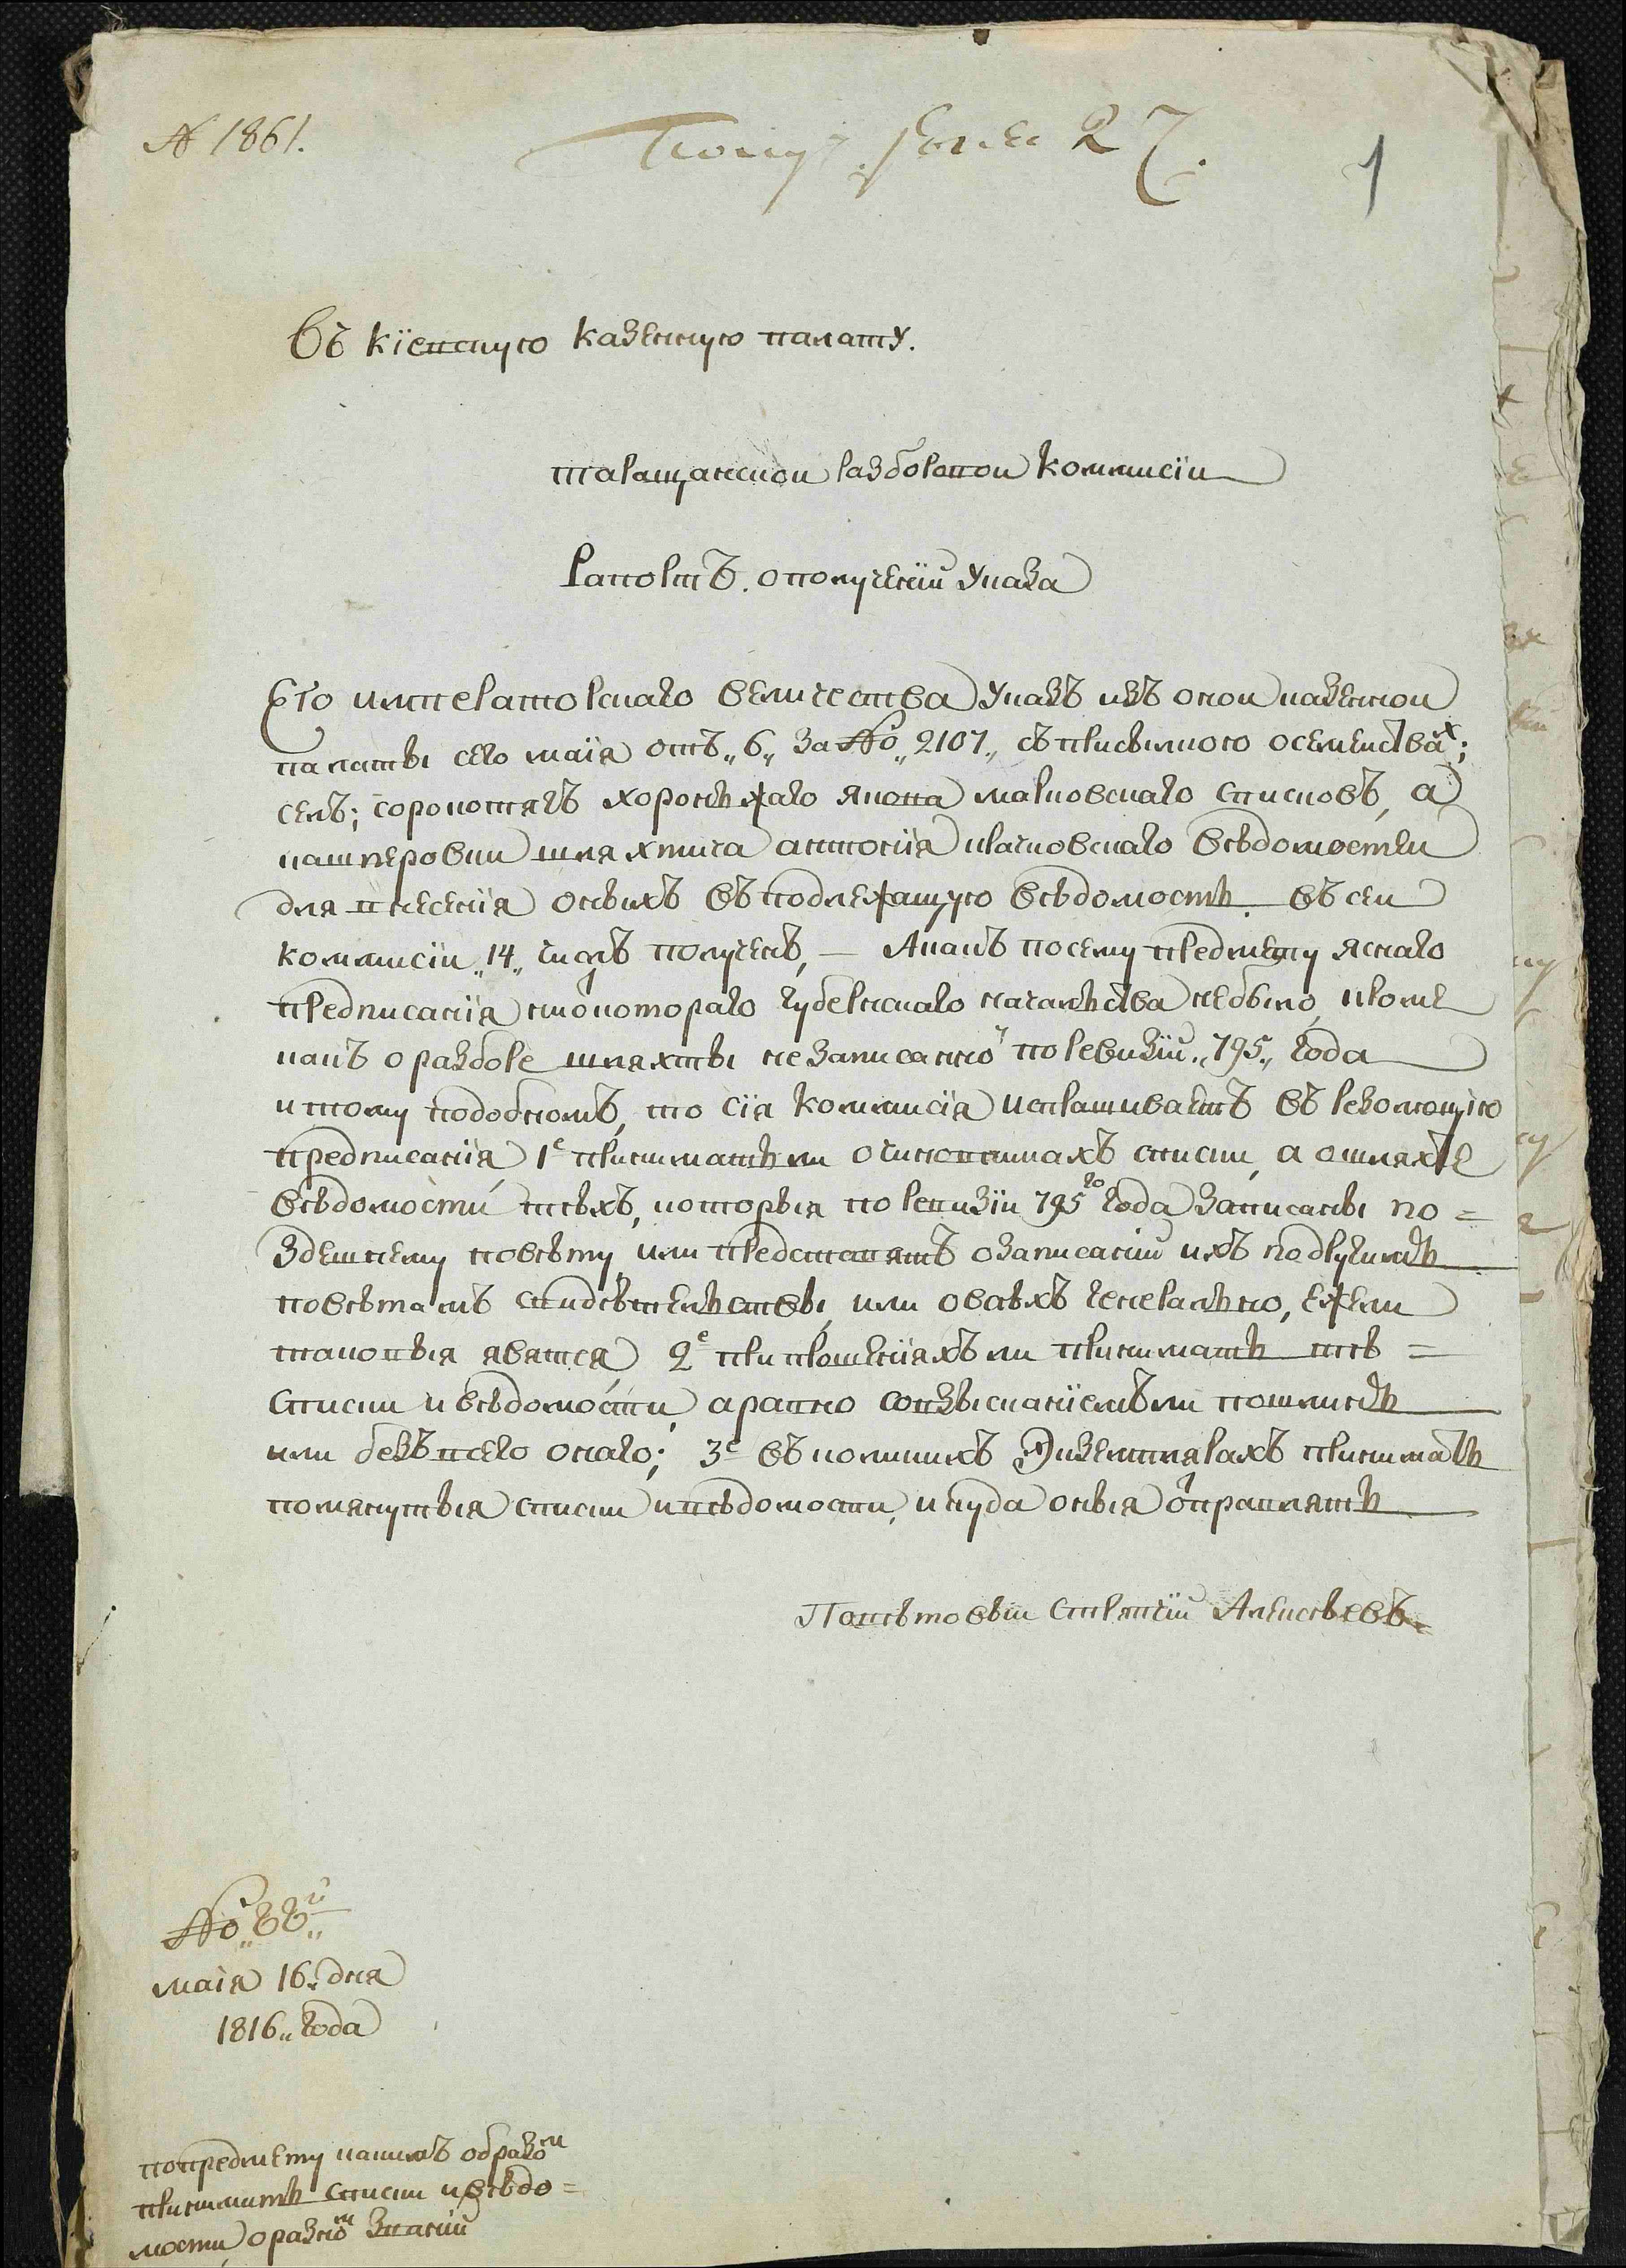 № 1861.
27.
1
Въ Кіевскую казенную палату.
Таращанской разборной коммисіи
Рапортъ. о получении указа
Его императорскаго величества указъ изъ оной казенной
палаты сего маія отъ „6„ за №„ 2107„ съ присылкою о семействахъ:
селъ; сорокотягъ хорон жаго якова малковскаго списковъ, а
кашперовки шляхтича антонія крачковскаго вѣдомостей
для внесенія оныхъ въ подлежащую вѣдомость. въ сей
коммисіи „14„ числа полученъ, — А какъ посему предмету яснаго
предписанія отъ котораго губернскаго начальства небыло, кроме
какъ о разборе шляхты не записанной по ревизіи „795„ года
и тому подобномъ, то сія коммисія испрашиваетъ въ резолюцію
предписанія, 1е приниматьли о чиновникахъ списки, а о шляхте
вѣдомости тѣхъ, которыя по ревизіи 795го года записаны по=
здешнему повѣту, или представятъ о записаніи ихъ по другимъ
повѣтамъ свидѣтельствы, или о всѣхъ генерально, ежели
таковыя явятся, 2е при прошеніяхъ ли приниматъ тѣ=
списки и вѣдомости, а равно со взысканіемъ ли пошлинъ
или безъ всего онаго; 3е въ колликихъ экземплярахъ принимать
помянутыя списки и вѣдомости, и куда оныя отправлять
Повѣтовый стряпчій Алексѣевъ
№„
маія 16„ дня
1816„ года
по предмету какимъ образомъ
принимать списки и вѣдо=
мости о разномъ званіи